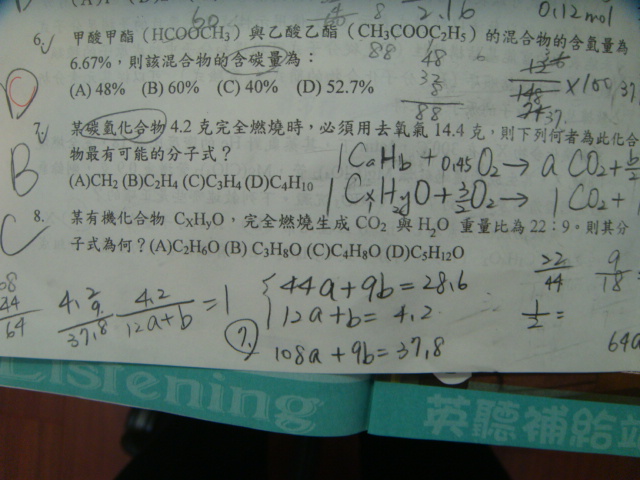 60
8
2.16
0.12mol
6. 甲酸甲酯（HCOOCH3）與乙酸乙酯（CH3COOC2H5）的混合物的含氫量為
6.67%，則該混合物的含碳量為：
88
48
32
8
88
×100
37.
(A) 48% (B) 60% (C) 40% (D) 52.7%
D
7. 某碳氫化合物 4.2 克完全燃燒時，必須用去氧氣 14.4 克，則下列何者為此化合
物最有可能的分子式？
B
1 CaHb + 0.45 O2 → a CO2 + b/2
(A)CH2 (B)C2H4 (C)C3H4 (D)C4H10
1 CxHyO + 3/2 O2 → 1 CO2 + 1
8. 某有機化合物 CXHyO，完全燃燒生成 CO2 與 H2O 重量比為 22：9。則其分
子式為何？(A)C2H6O (B) C3H8O (C)C4H8O (D)C5H12O
C
22/44
9/18
44a + 9b = 28.6
12a + b = 4.2
1/2 =
44
64
4.2
9
37.8
4.2/12a+b = 1
7.
108a + 9b = 37.8
64a
Listening
英聽補給站